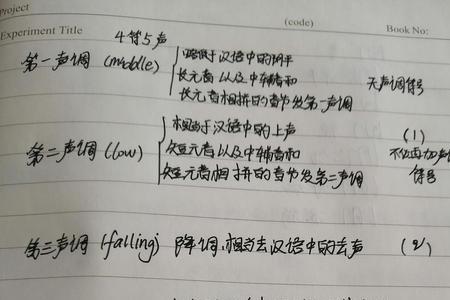 Project
Experiment Title (code) Book No:
4符5声
第一声调 (middle)
略低于汉语中的阴平
长元音以及中辅音和 无声调符号
长元音相拼的音节发第一声调
第二声调 (low)
相当于汉语中的上声 (1)
短元音以及中辅音和 不仅再加声
短元音相拼的音节发第二声调 符号
第三声调 (falling) 降调,相当去汉语中的去声 (2)